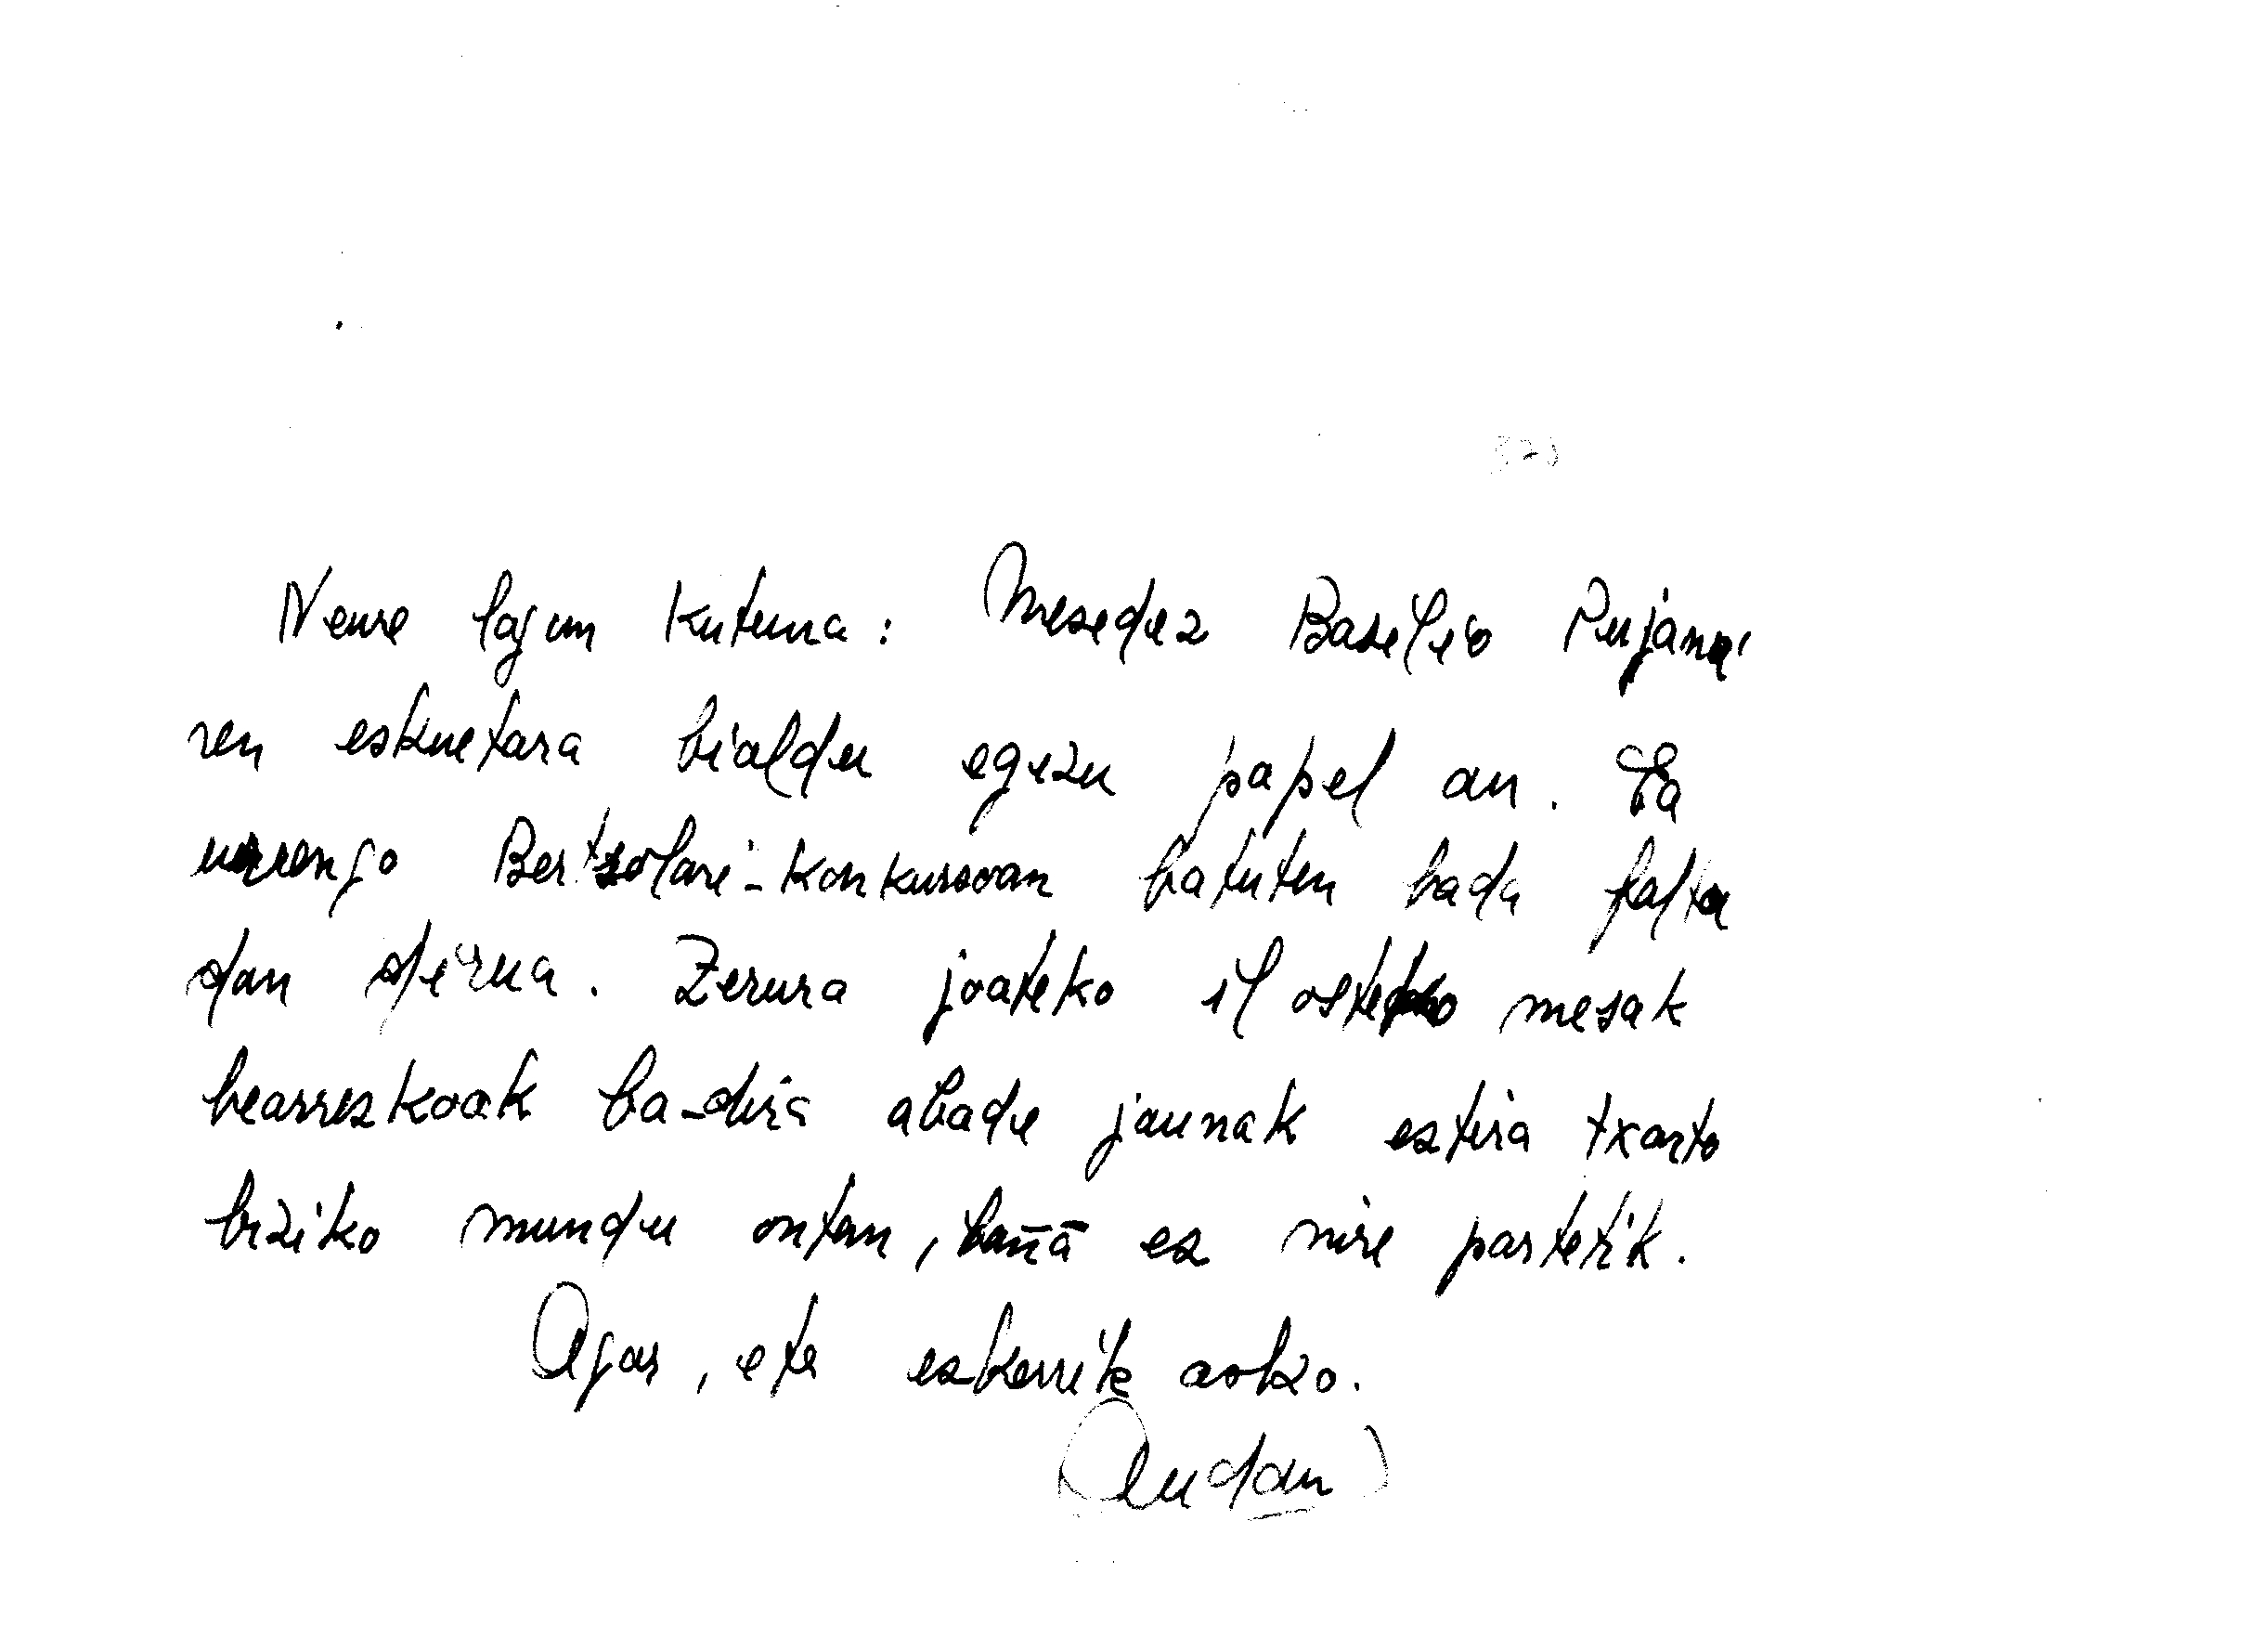 Neure lagun kutuna: Mesedez Basilio Pujana'
ren eskuetara bialdu egizu papel au. Ea
urrengo Bertsolari-konkursoan batuten bada falta
dan dirua. Zerura joateko il osteko mesak
bearrezkoak ba-dira abade jaunak eztira txarto
biziko mundu ontan, bañā ez nire partetik.
Agur, eta eskerrik asko.